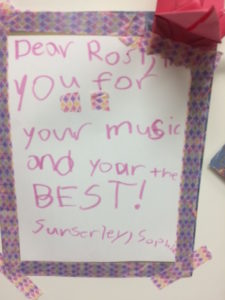 Dear
you for
your music
and your the
BEST!
Sunserley, Sophi